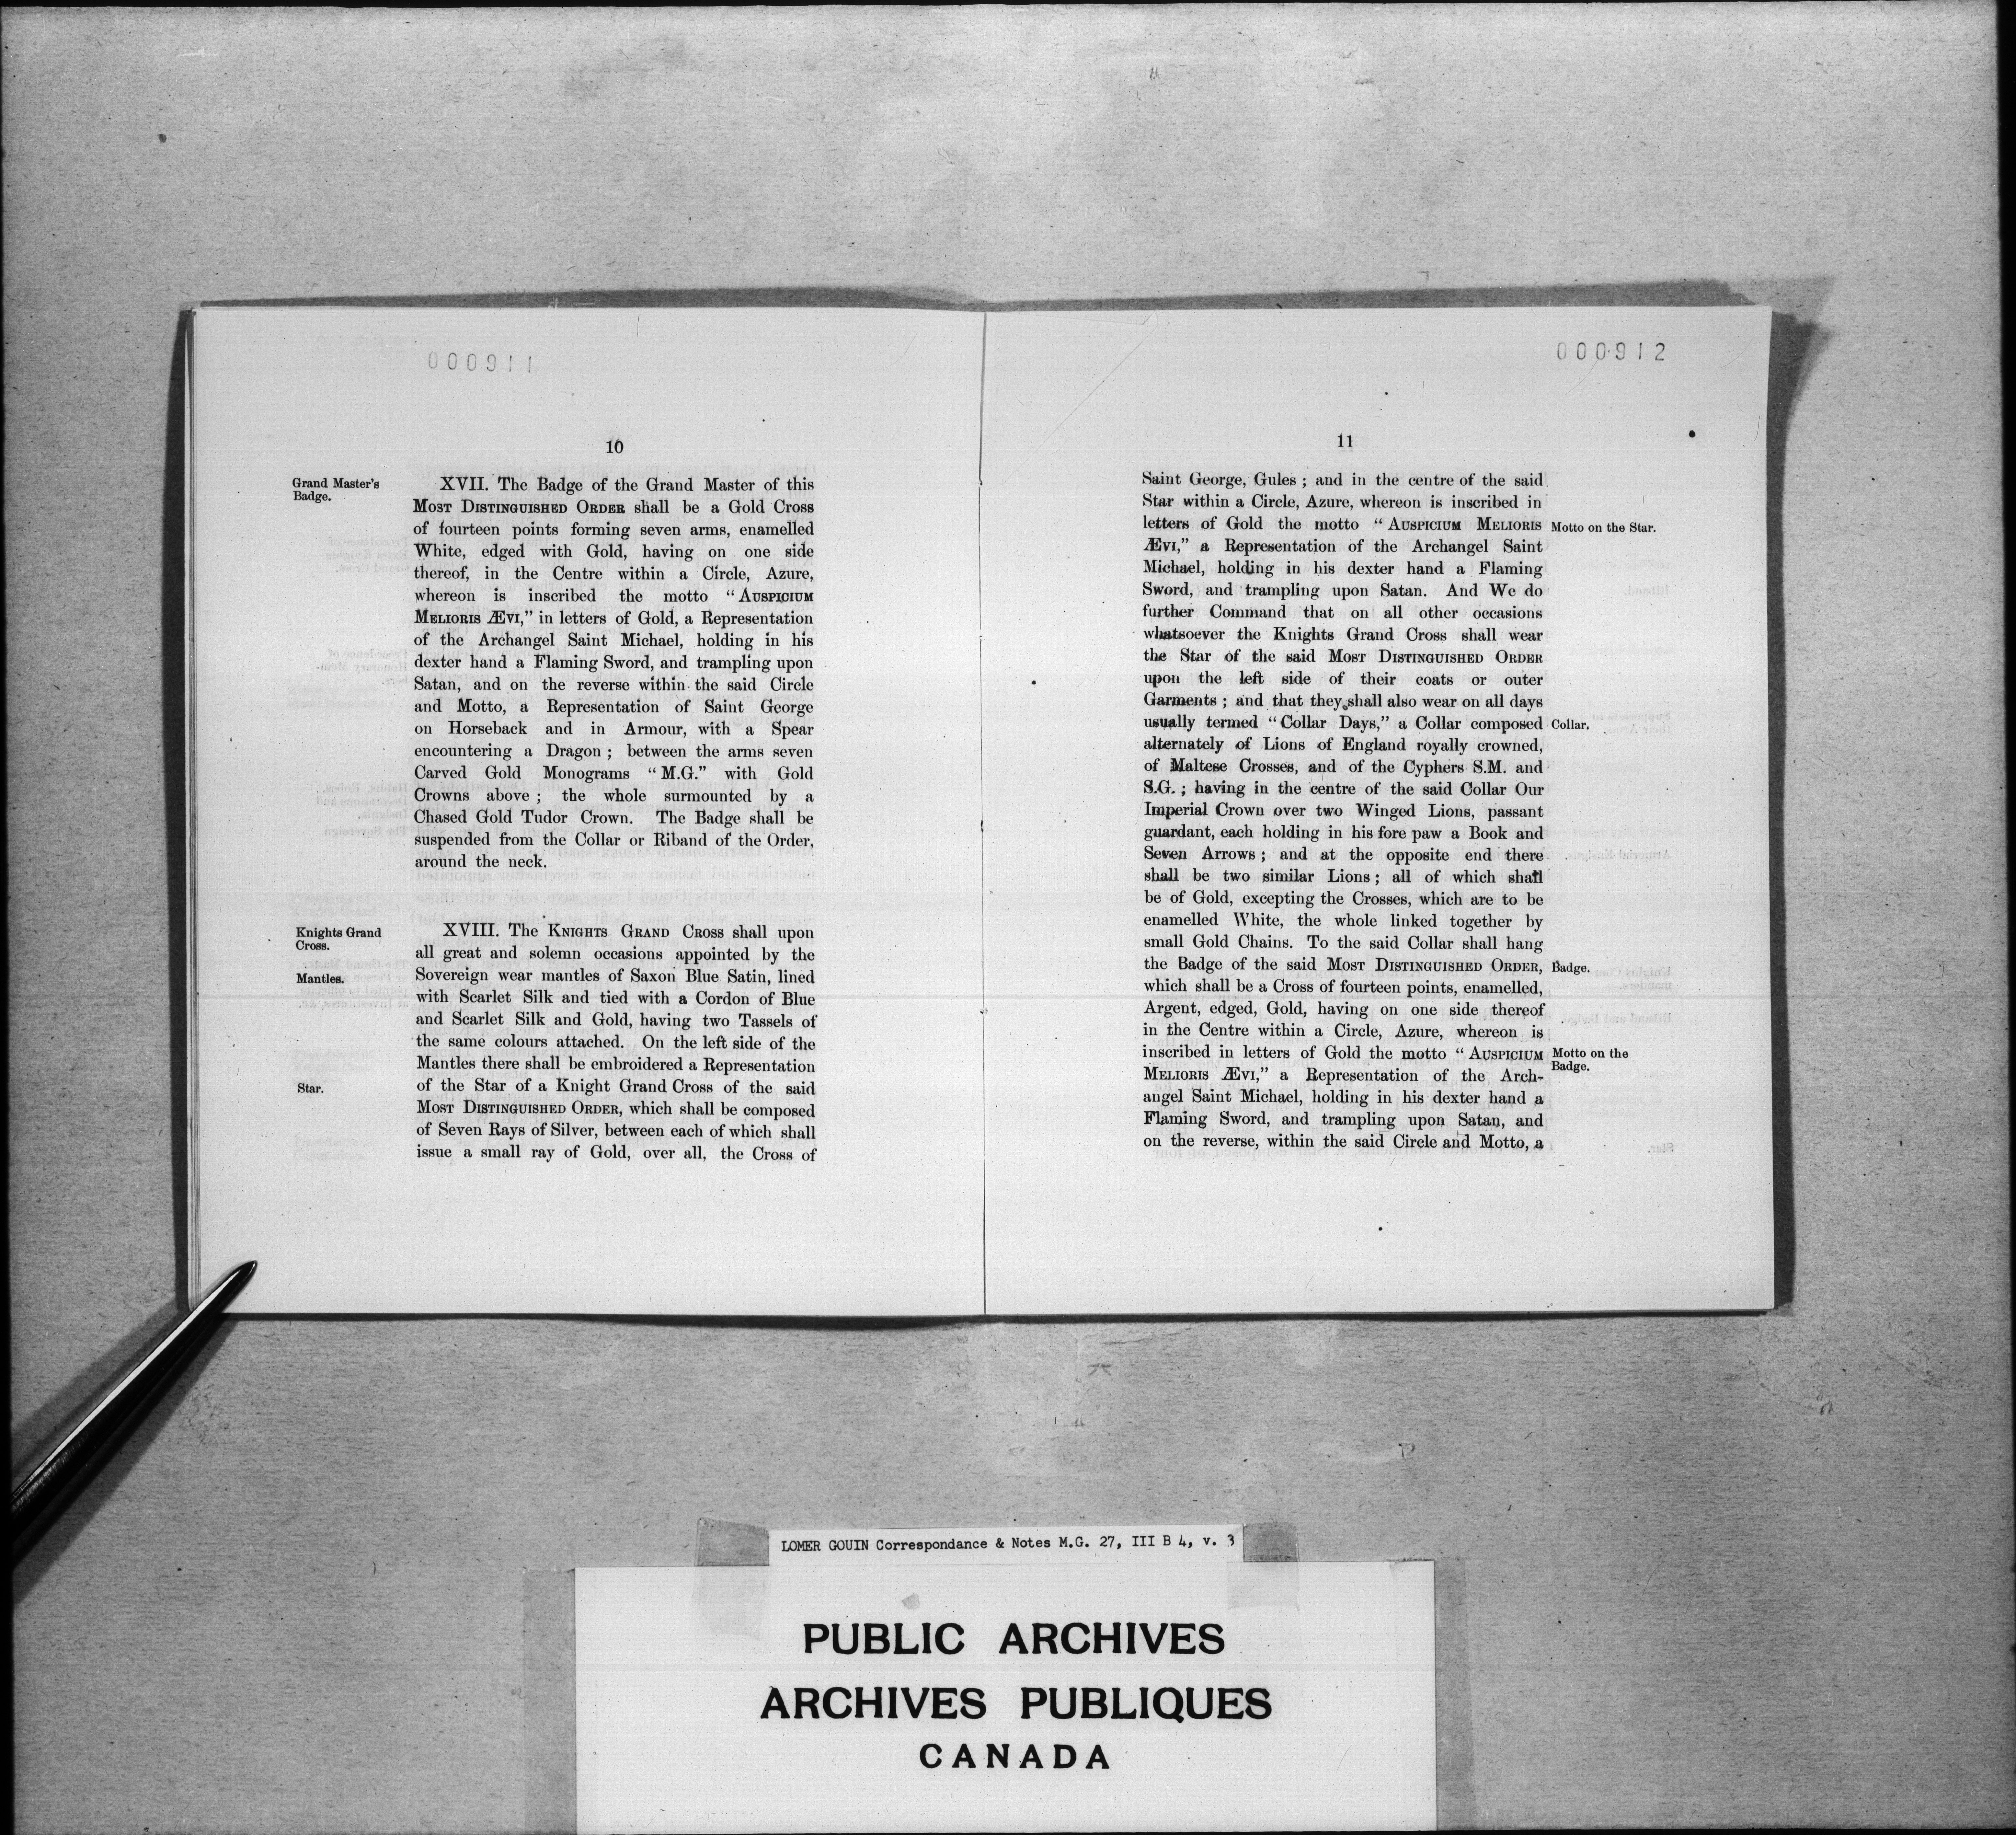 000911
10
Grand Master's
Badge.
XVII. The Badge of the Grand Master of this
MOST DISTINGUISHED ORDER shall be a Gold Cross
of fourteen points forming seven arms, enamelled
White, edged with Gold, having on one side
thereof, in the Centre within a Circle, Azure,
whereon is inscribed the motto “AUSPICIUM
MELIORIS ÆVI,” in letters of Gold, a Representation
of the Archangel Saint Michael, holding in his
dexter hand a Flaming Sword, and trampling upon
Satan, and on the reverse within the said Circle
and Motto, a Representation of Saint George
on Horseback and in Armour, with a Spear
encountering a Dragon; between the arms seven
Carved Gold Monograms “M.G.” with Gold
Crowns above; the whole surmounted by a
Chased Gold Tudor Crown. The Badge shall be
suspended from the Collar or Riband of the Order,
around the neck.
Knights Grand
Cross.
Mantles.
Star.
XVIII. The KNIGHTS GRAND CROSS shall upon
all great and solemn occasions appointed by the
Sovereign wear mantles of Saxon Blue Satin, lined
with Scarlet Silk and tied with a Cordon of Blue
and Scarlet Silk and Gold, having two Tassels of
the same colours attached. On the left side of the
Mantles there shall be embroidered a Representation
of the Star of a Knight Grand Cross of the said
MOST DISTINGUISHED ORDER, which shall be composed
of Seven Rays of Silver, between each of which shall
issue a small ray of Gold, over all, the Cross of
000912
11
Saint George, Gules; and in the centre of the said
Star within a Circle, Azure, whereon is inscribed in
letters of Gold the motto “AUSPICIUM MELIORIS
Motto on the Star.
ÆVI,” a Representation of the Archangel Saint
Michael, holding in his dexter hand a Flaming
Sword, and trampling upon Satan. And We do
further Command that on all other occasions
whatsoever the Knights Grand Cross shall wear
the Star of the said MOST DISTINGUISHED ORDER
upon the left side of their coats or outer
Garments; and that they shall also wear on all days
usually termed “Collar Days,” a Collar composed
Collar.
alternately of Lions of England royally crowned,
of Maltese Crosses, and of the Cyphers S.M. and
S.G.; having in the centre of the said Collar Our
Imperial Crown over two Winged Lions, passant
guardant, each holding in his fore paw a Book and
Seven Arrows; and at the opposite end there
shall be two similar Lions; all of which shall
be of Gold, excepting the Crosses, which are to be
enamelled White, the whole linked together by
small Gold Chains. To the said Collar shall hang
the Badge of the said MOST DISTINGUISHED ORDER,
Badge.
which shall be a Cross of fourteen points, enamelled,
Argent, edged, Gold, having on one side thereof
in the Centre within a Circle, Azure, whereon is
inscribed in letters of Gold the motto “AUSPICIUM
Motto on the
Badge.
MELIORIS ÆVI,” a Representation of the Arch-
angel Saint Michael, holding in his dexter hand a
Flaming Sword, and trampling upon Satan, and
on the reverse, within the said Circle and Motto, a
LOMER GOUIN Correspondance & Notes M.G. 27, III B 4, v. 3
PUBLIC ARCHIVES
ARCHIVES PUBLIQUES
CANADA